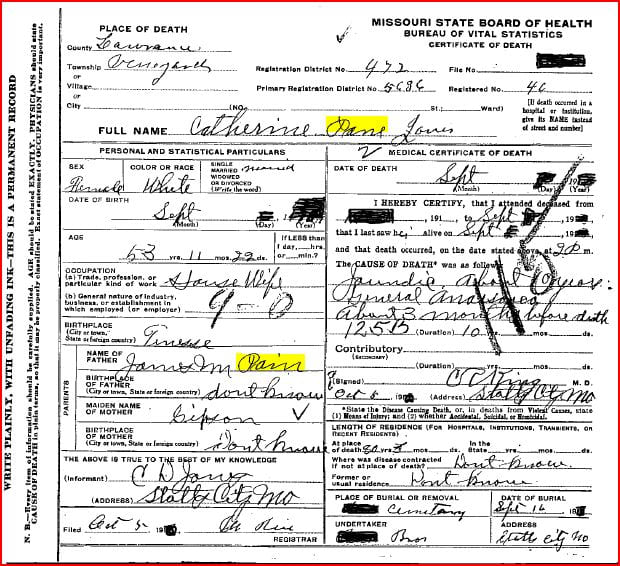 MISSOURI STATE BOARD OF HEALTH
BUREAU OF VITAL STATISTICS
CERTIFICATE OF DEATH
WRITE PLAINLY, WITH UNFADING INK—THIS IS A PERMANENT RECORD
N. B.—Every item of information should be carefully supplied. AGE should be stated EXACTLY. PHYSICIANS should state
CAUSE OF DEATH in plain terms, so that it may be properly classified. Exact statement of OCCUPATION is very important.
PLACE OF DEATH
County Lawrence
Township
or
Village
or
City (NO. St.; Ward)
Registration District No. 472 File No.
Primary Registration District No. 5636 Registered No. 46
[If death occurred in a
hospital or institution,
give its NAME instead
of street and number]
FULL NAME Catherine Pane Jones
PERSONAL AND STATISTICAL PARTICULARS
SEX
Female
COLOR OR RACE
White
SINGLE
MARRIED
WIDOWED
OR DIVORCED
(Write the word)
married
DATE OF BIRTH
Sept
(Month) (Day) (Year)
AGE
53 yrs. 11 mos. 22 ds.
If LESS than
1 day, hrs.
or min.?
OCCUPATION
(a) Trade, profession, or
particular kind of work House Wife
(b) General nature of industry,
business, or establishment in
which employed (or employer)
9-0
BIRTHPLACE
(City or town,
State or foreign country)
PARENTS
NAME OF
FATHER James M Pain
BIRTHPLACE
OF FATHER
(City or town, State or foreign country) dont know
MAIDEN NAME
OF MOTHER Gipson
BIRTHPLACE
OF MOTHER
(City or town, State or foreign country) Dont know
THE ABOVE IS TRUE TO THE BEST OF MY KNOWLEDGE
(Informant) C D Jones
(ADDRESS) City Mo
Filed Oct 5 191
REGISTRAR
2 MEDICAL CERTIFICATE OF DEATH
DATE OF DEATH
Sept
(Month) (Day) (Year)
I HEREBY CERTIFY, that I attended deceased from
191 , to Sept 191
that I last saw her alive on Sept 191
and that death occurred, on the date stated above, at m.
The CAUSE OF DEATH* was as follows:
Jaundice about
General
about 3 months before death
125B
(Duration) 10 mos. ds.
Contributory
(SECONDARY)
(Duration) yrs. mos. ds.
(Signed) C King M. D.
Oct 5 191 (Address) City Mo
*State the Disease Causing Death, or, in deaths from Violent Causes, state
(1) Means of Injury; and (2) whether Accidental, Suicidal, or Homicidal.
LENGTH OF RESIDENCE (FOR HOSPITALS, INSTITUTIONS, TRANSIENTS, OR
RECENT RESIDENTS)
At place
of death yrs. mos. ds.
In the
State yrs. mos. ds.
Where was disease contracted
if not at place of death? Dont know
Former or
usual residence Dont know
PLACE OF BURIAL OR REMOVAL
Cemetary
DATE OF BURIAL
Sept 16 191
UNDERTAKER
Bros
ADDRESS
City Mo